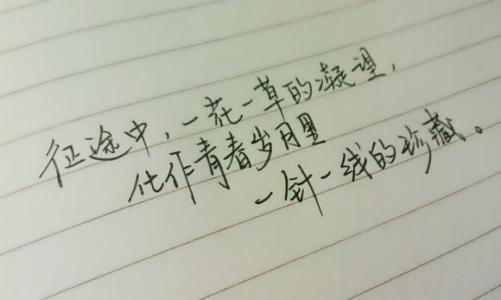 征途中，一花一草的凝望，
化作青春岁月里
一针一线的珍藏。